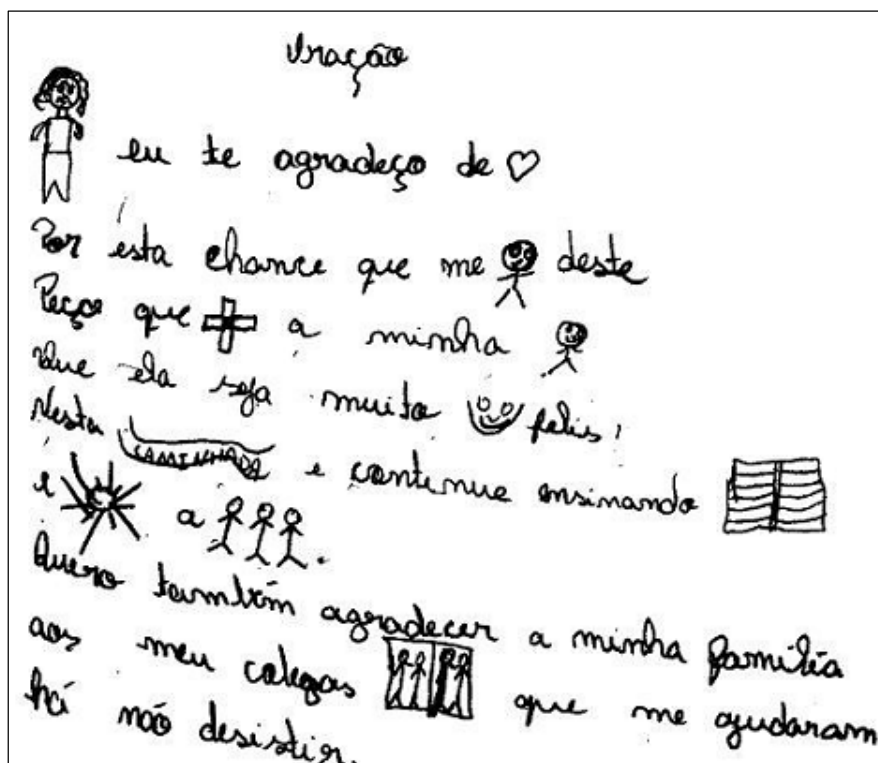 Oração
eu te agradeço de
Por esta chance que me deste
Peço que a minha
Que ela seja muito felis,
Nesta CAMINHADA e continue ensinando
e a
Quero também agradecer a minha família
aos meu colegas que me ajudaram
há não desistir.